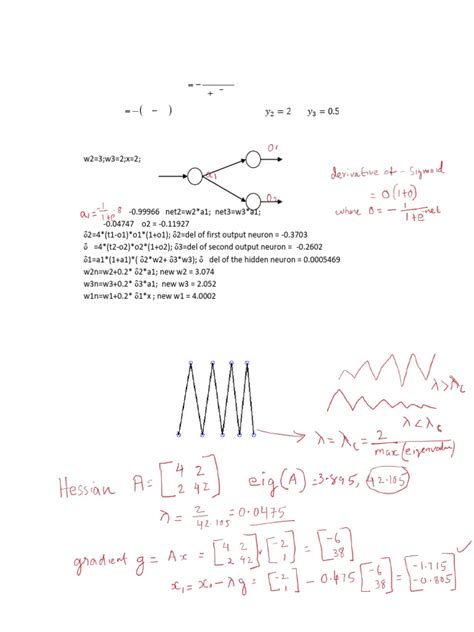 = −
+ −
= −( − ) y₂ = 2 y₃ = 0.5
w2=3;w3=2;x=2;
o1
a1
o2
derivative of - Sigmoid
= o(1+o)
where o = - 1/(1+e^net)
a1 = -1/(1+e^-8) -0.99966 net2=w2*a1; net3=w3*a1;
-0.04747 o2 = -0.11927
δ2=4*(t1-o1)*o1*(1+o1); δ2=del of first output neuron = -0.3703
δ =4*(t2-o2)*o2*(1+o2); δ3=del of second output neuron = -0.2602
δ1=a1*(1+a1)*( δ2*w2+ δ3*w3); δ del of the hidden neuron = 0.0005469
w2n=w2+0.2* δ2*a1; new w2 = 3.074
w3n=w3+0.2* δ3*a1; new w3 = 2.052
w1n=w1+0.2* δ1*x ; new w1 = 4.0002
λ>λc
λ<λc
λ = λc = 2/max(eigenvalue)
Hessian A = [4 2; 2 42] eig(A) = 3.895, 42.105
λ = 2/42.105 = 0.0475
gradient g = Ax = [4 2; 2 42] * [-2; 1] = [-6; 38]
x₁ = x₀ - λg = [-2; 1] - 0.475 [-6; 38] = [-1.715; -0.805]